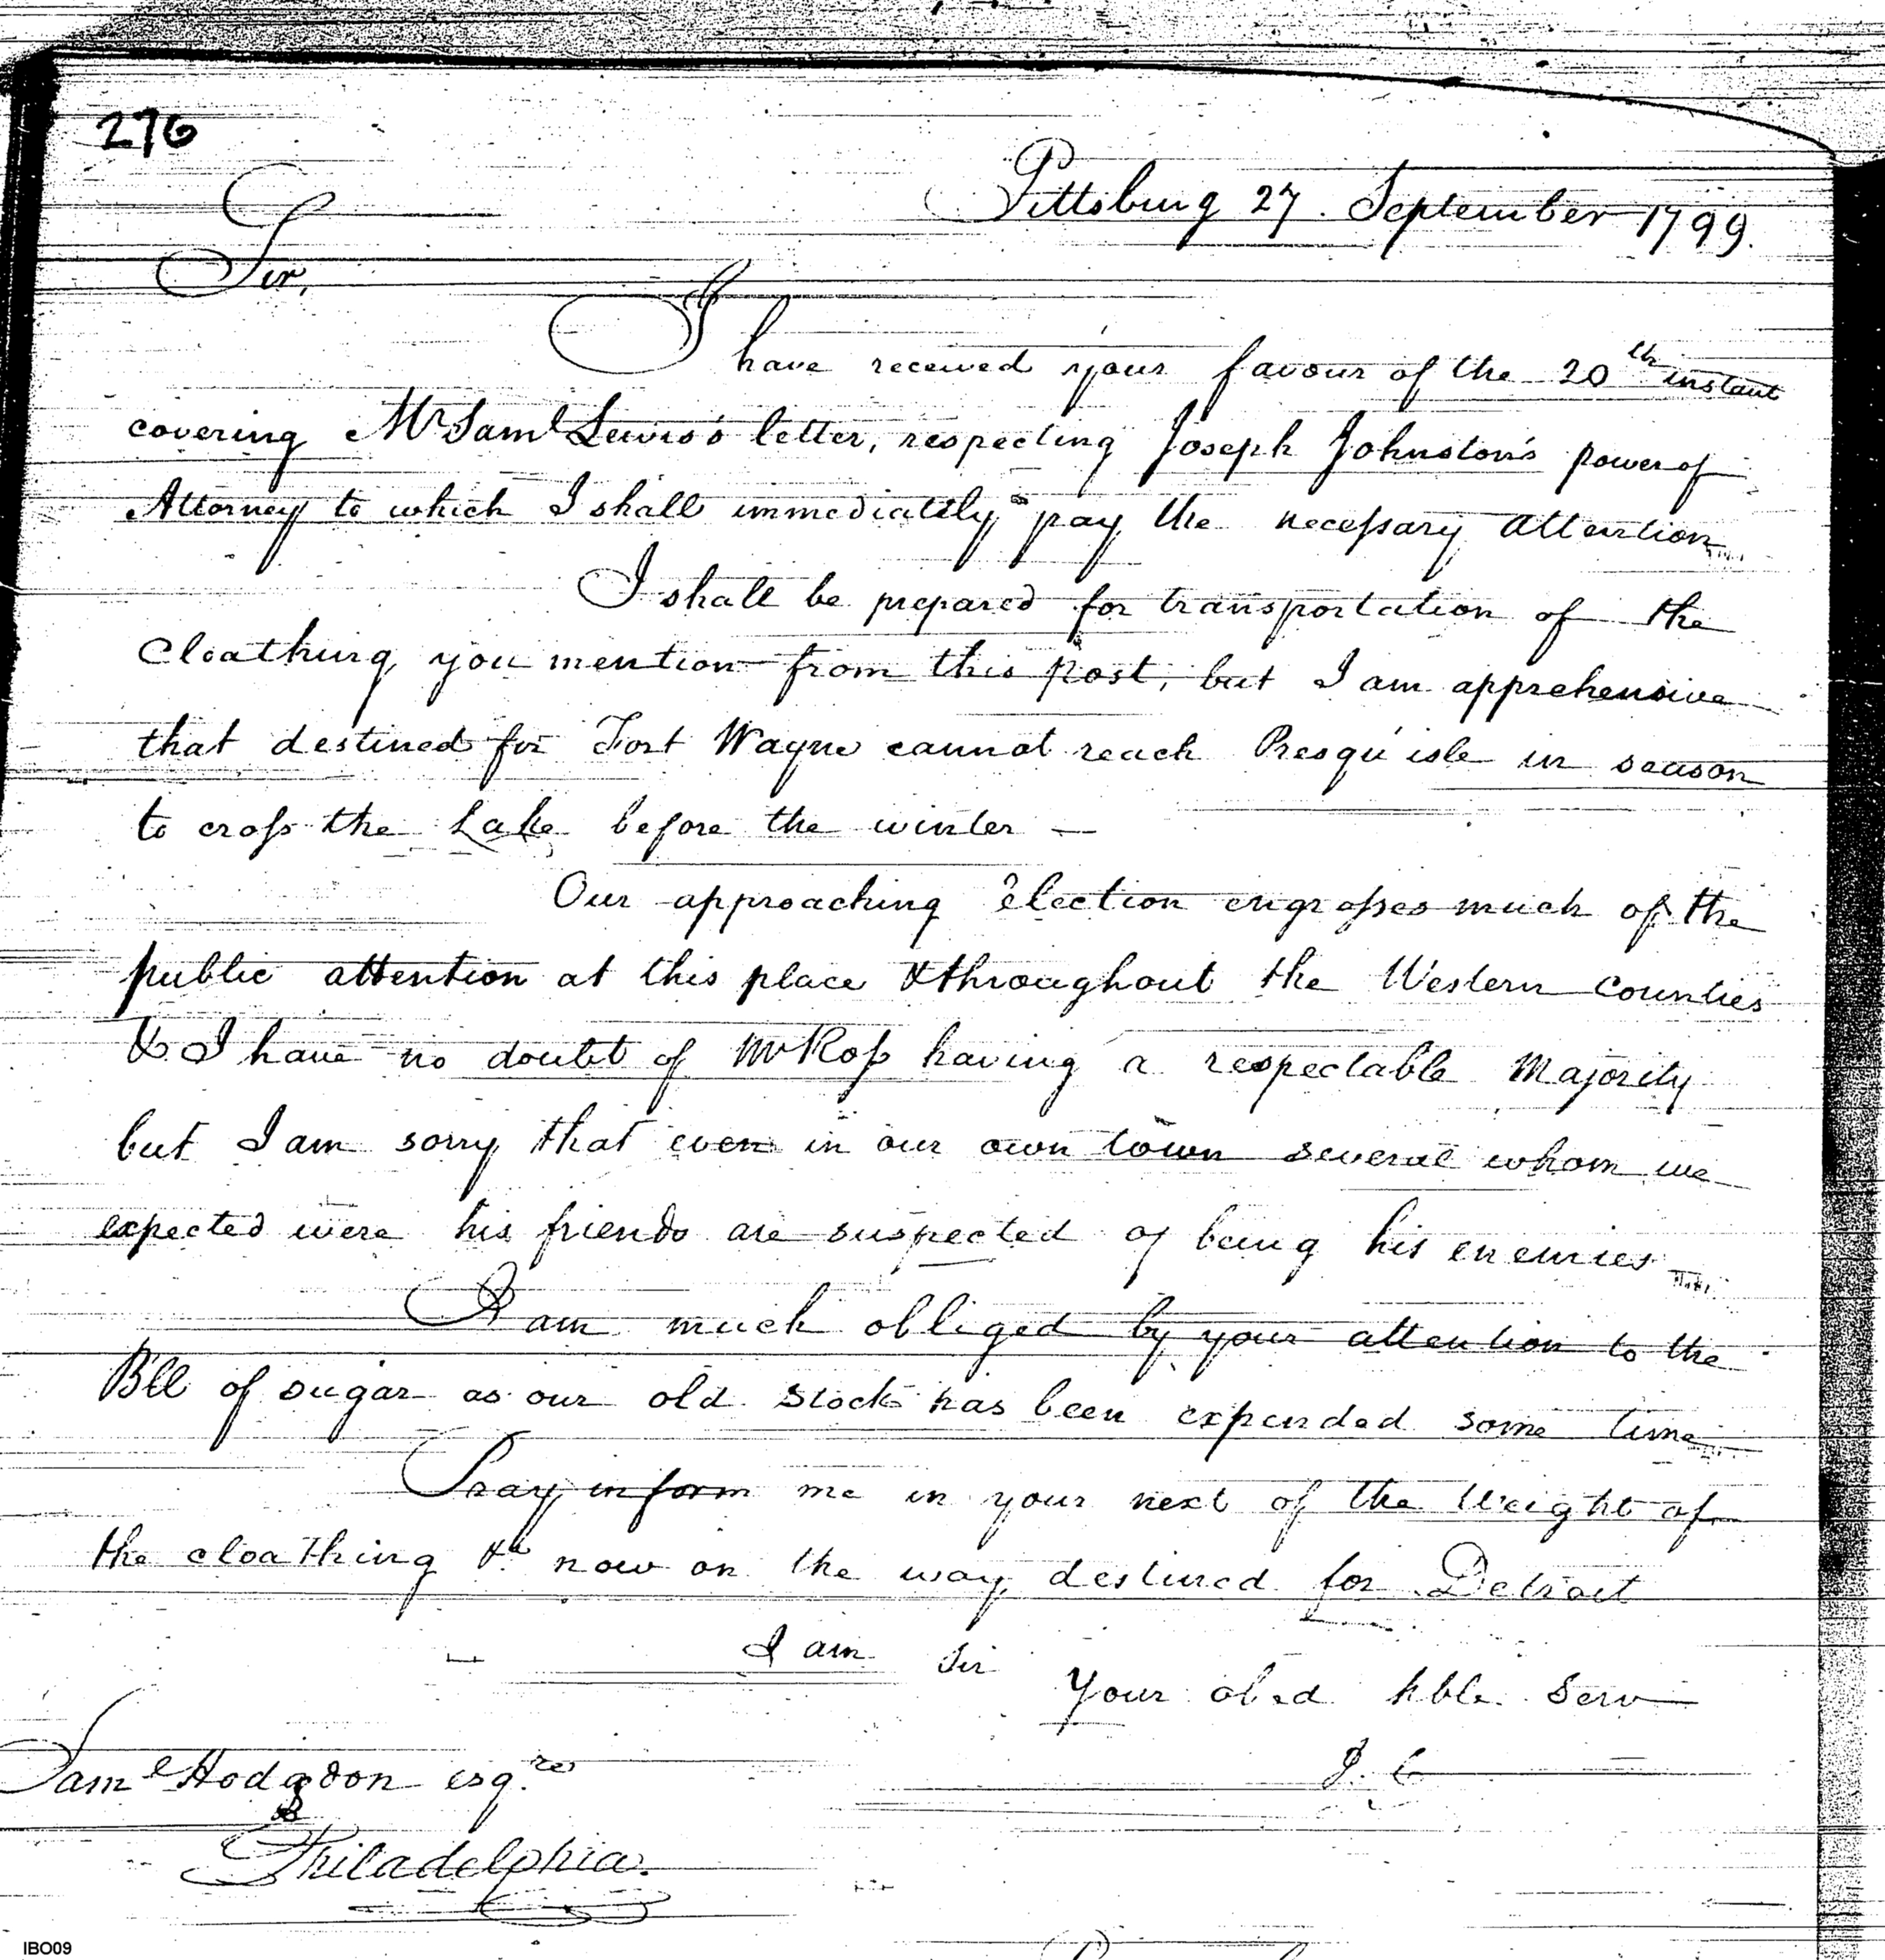 276
Pittsburg 27. September 1799.
Sir,
I have received your favour of the 20th instant
covering Mr Saml Lewis's letter, respecting Joseph Johnston's power of
Attorney to which I shall immediately pay the necessary attention
I shall be prepared for transportation of the
Cloathing you mention from this post, but I am apprehensive
that destined for Fort Wayne cannot reach Presqu'isle in season
to cross the Lake before the winter —
Our approaching election engrosses much of the
public attention at this place & throughout the Western Counties
& I have no doubt of Mr Ross having a respectable Majority
but I am sorry that even in our own town several whom we
expected were his friends are suspected of being his enemies
I am much obliged by your attention to the
Bll of sugar as our old stock has been expended some time
Pray inform me in your next of the Weight of
the cloathing &c now on the way destined for Detroit
I am Sir
Your obed hble Serv
I. C
Saml Hodgdon esqre
Philadelphia.
IBO09